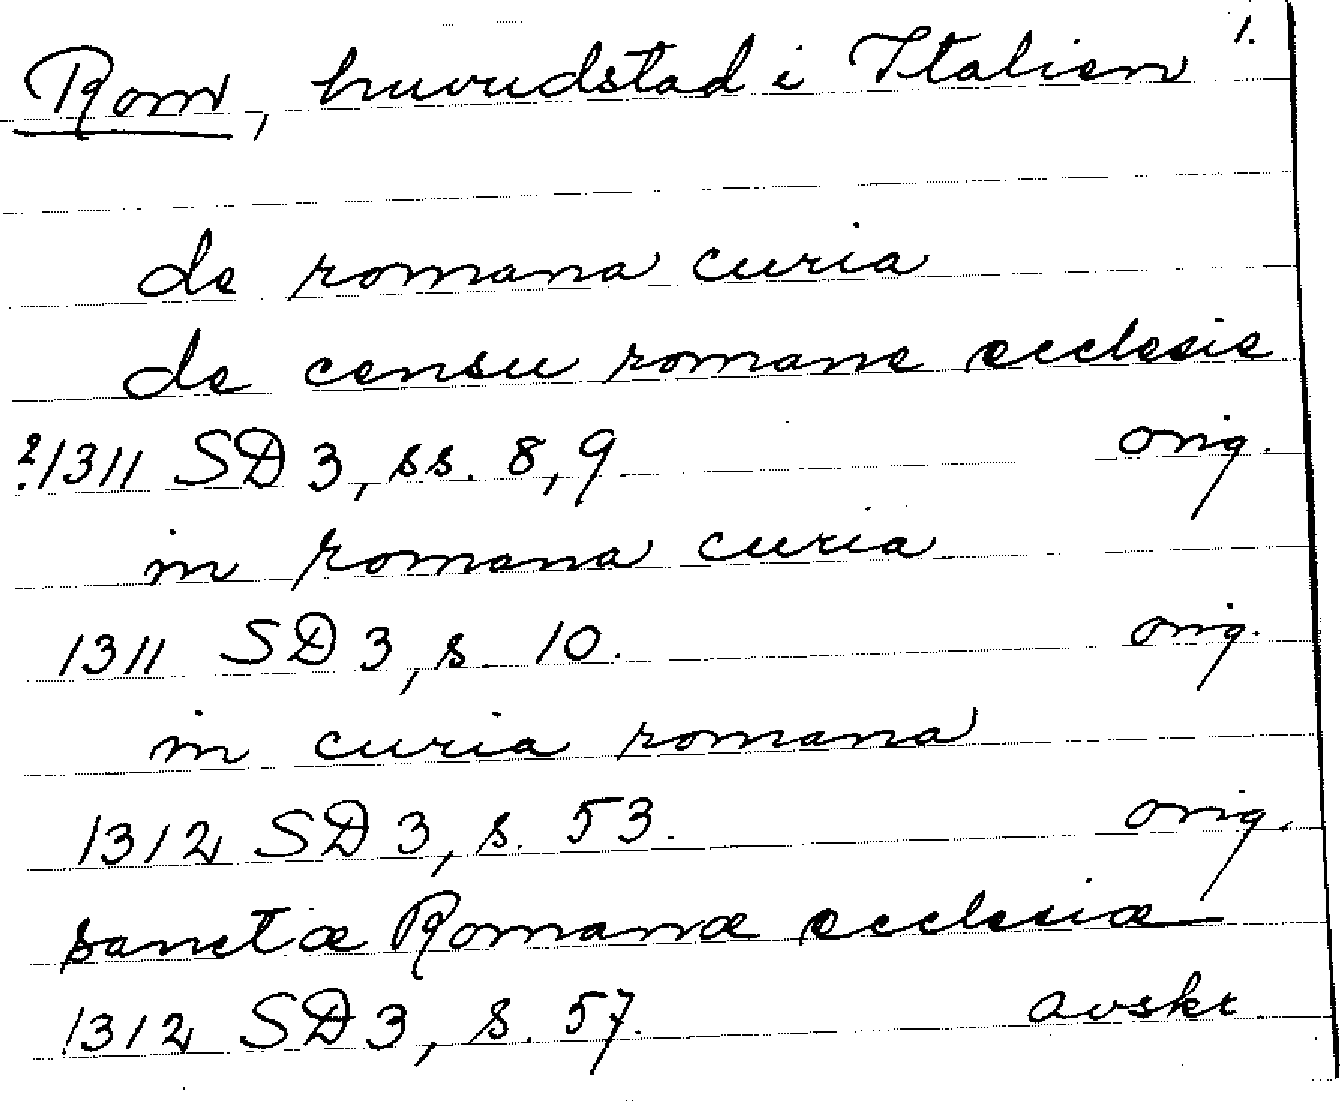 Rom, huvudstad i Italien 1.
de romana curia
de censu romane ecclesie
?1311 SD 3, ss. 8, 9 orig.
in romana curia
1311 SD 3, s. 10. orig.
in curia romana
1312 SD 3, s. 53. orig.
sanctæ Romanæ ecclesiæ
1312 SD 3, s. 57. avskr